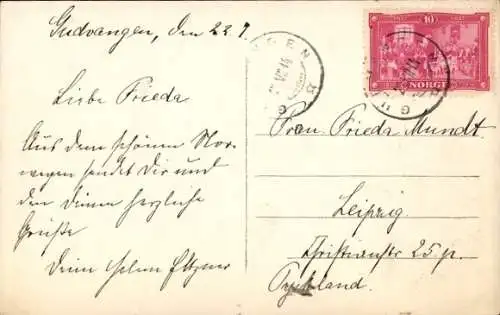 Gudvangen, den 22.7.
Liebe Frieda
Aus dem schönen Nor-
wegen sendet Dir und
den Deinen herzliche
Grüße
Deine
10
NORGE
Frau Frieda Mundt
Leipzig
25 p.
Tyskland.